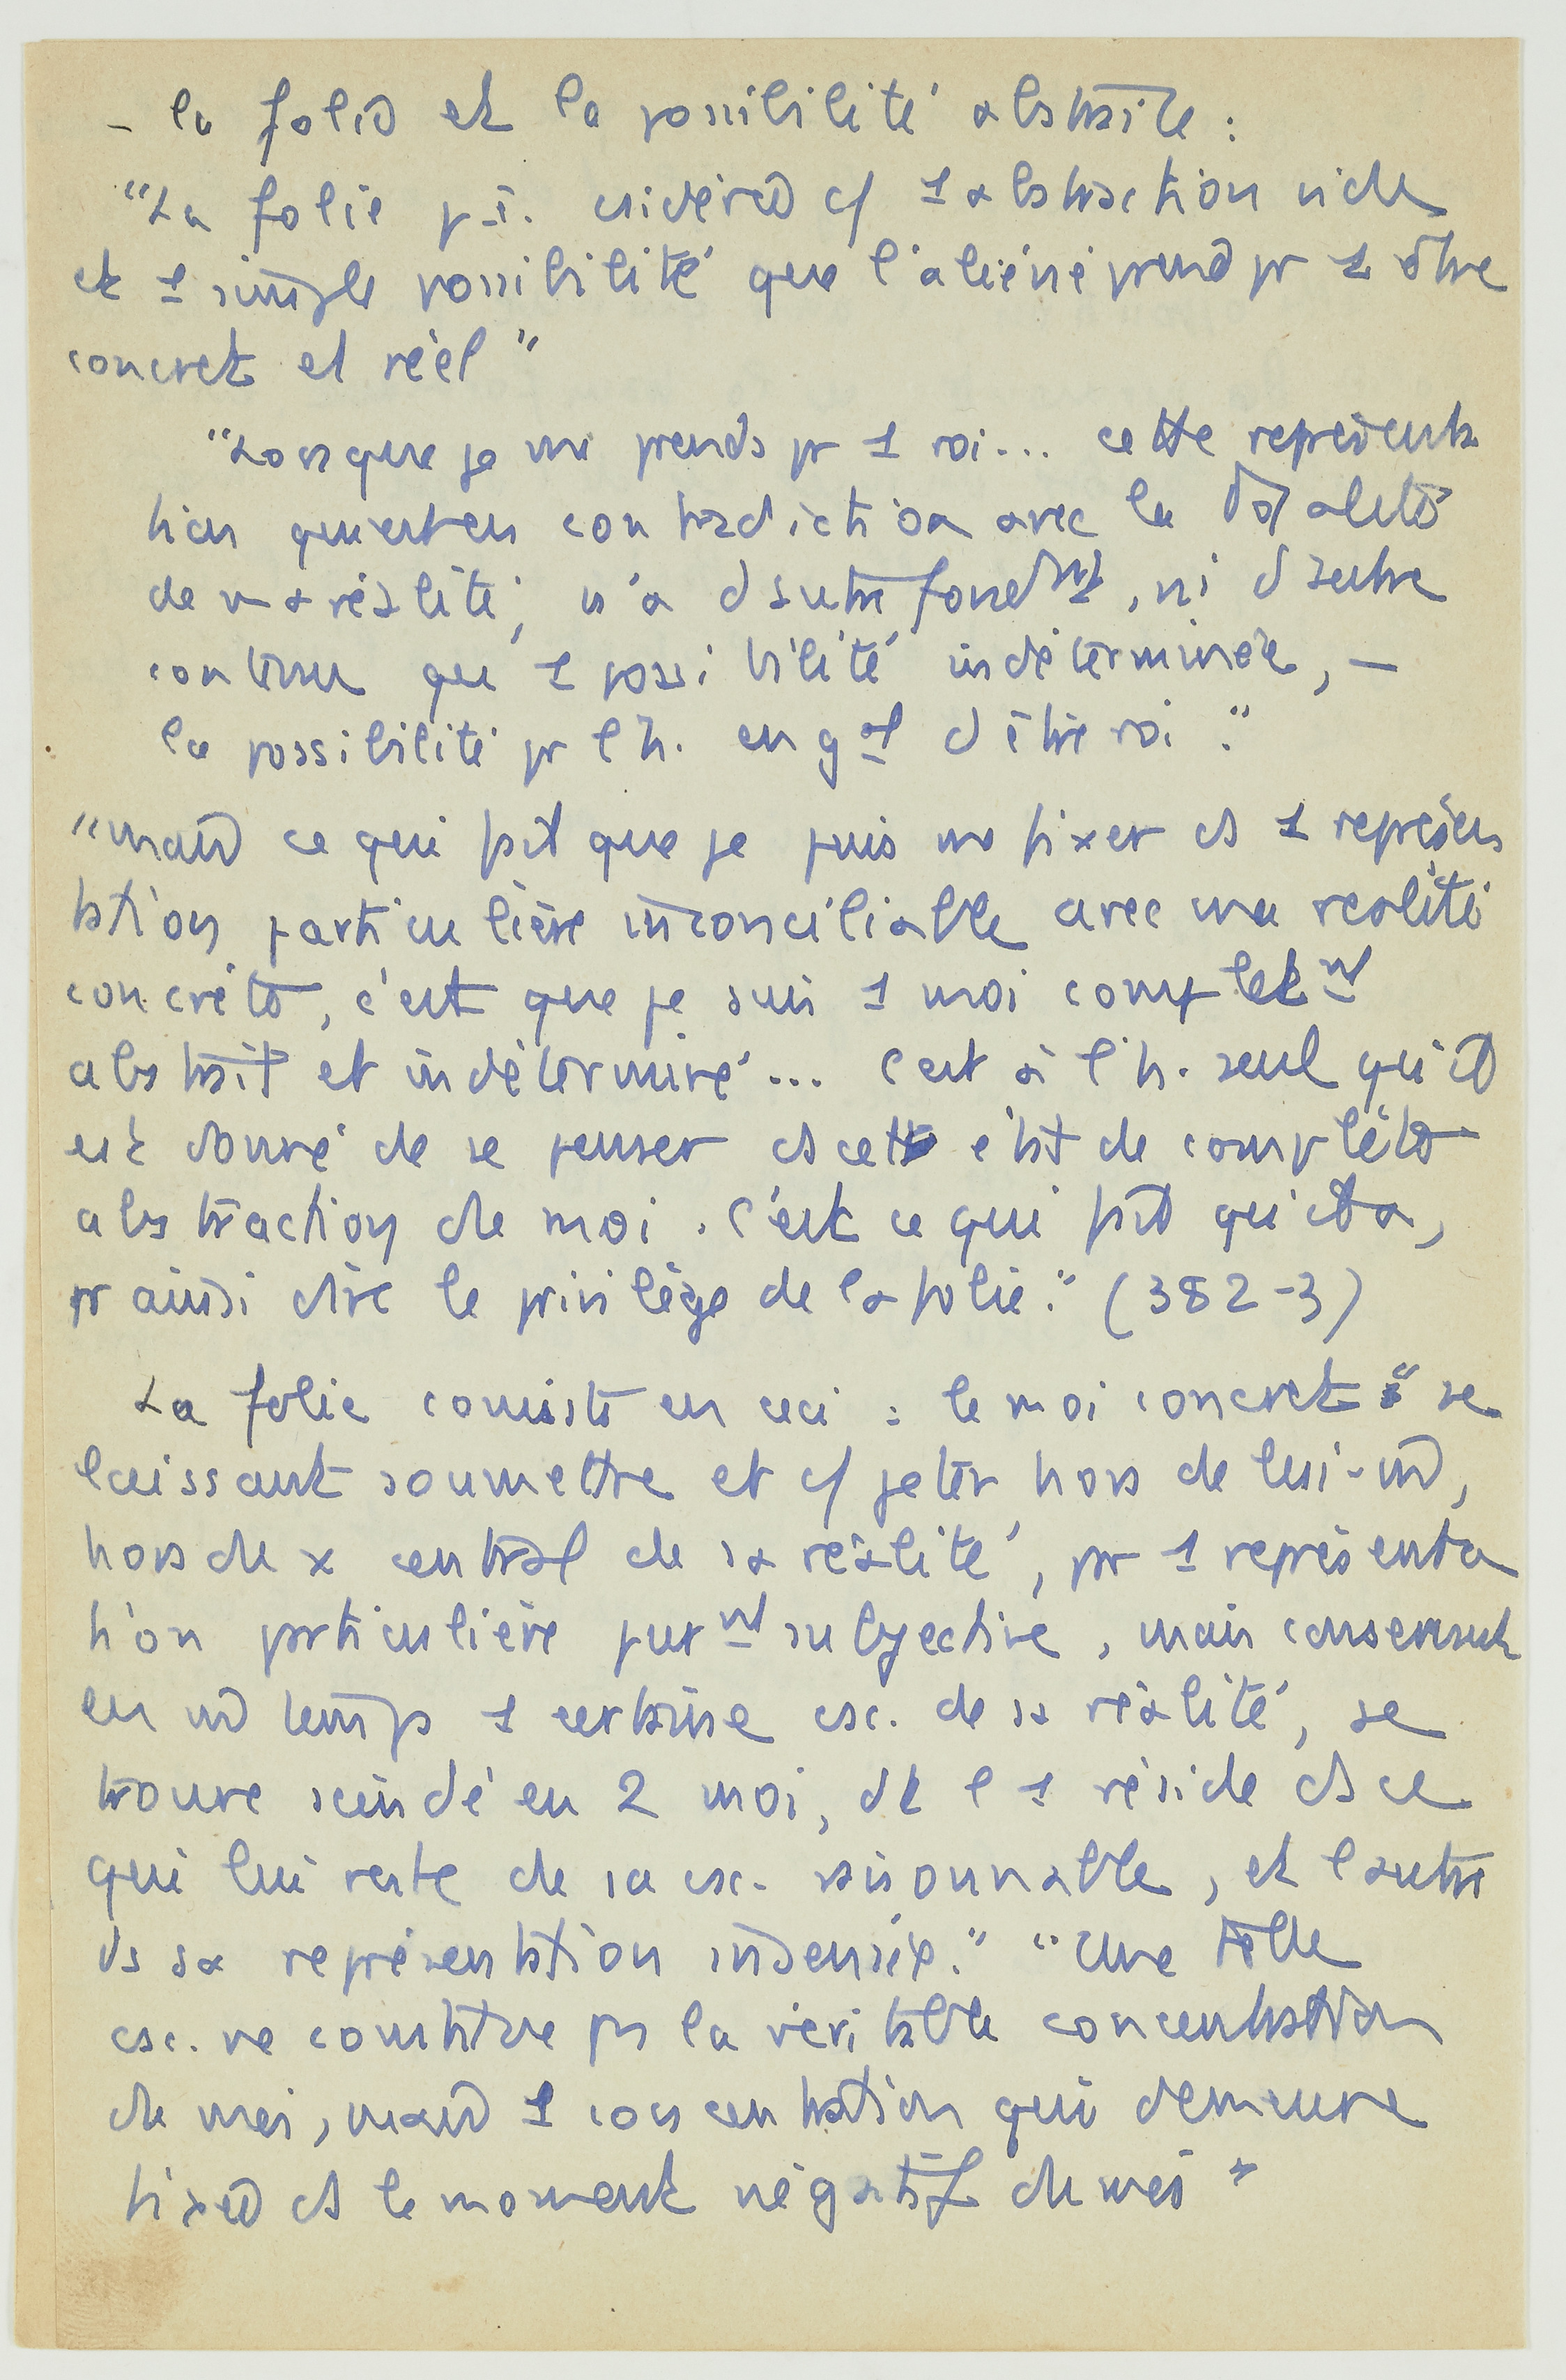 - la folie et la possibilité abstraite :
"La folie p. ê. csidérée c/ 1 abstraction vide
et 1 simple possibilité que l'aliéné prend pr 1 être
concret et réel"
"Lorsque je me prends pr 1 roi... cette représenta
tion qui est en contradiction avec la totalité
de ma réalité, n'a d'autre fondmt, ni d'autre
contenu qu'1 possibilité indéterminée, —
la possibilité pr l'h. en gal d'être roi."
"mais ce qui fait que je puis me fixer ds 1 représen
tation particulière inconciliable avec ma réalité
concrète, c'est que je suis 1 moi completmt
abstrait et indéterminé... C'est à l'h. seul qu'il
est donné de se penser ds cet état de complète
abstraction de moi. C'est ce qui fait qu'il a,
pr ainsi dire le privilège de la folie." (382-3)
La folie consiste en ceci : le moi concret "se
laissant soumettre et c/ jeter hors de lui-m,
hors de x central de sa réalité, pr 1 représenta
tion particulière purmt subjective, mais conservant
en m temps 1 certaine csc. de sa réalité, se
trouve scindé en 2 moi, dt l'1 réside ds ce
qui lui reste de sa csc. raisonnable, et l'autre
ds sa représentation insensée." "Une telle
csc. ne constitue pas la véritable concentration
de moi, mais 1 concentration qui demeure
fixée ds le moment négatif de moi"